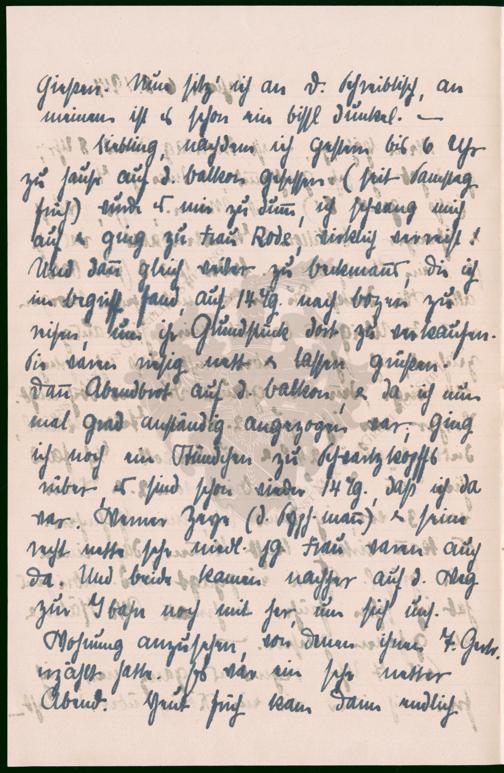 Gießen. Nun sitz' ich an d. Schreibtisch, an
meinem ist es schon ein bissl dunkel. —
Liebling, nachdem ich gestern bis 6 Uhr
zu Hause auf d. Balkon gesessen (seit Samstag
früh) wurde es mir zu dumm, ich schwang mich
auf & ging zu Frau Rode, wirklich verreist!
Und dann gleich weiter zu Beckmanns, die ich
im Begriff fand, auf 14 Tg. nach Bozen zu
reisen, um ihr Grundstück dort zu verkaufen.
Sie waren riesig nett & lassen grüßen.
Dann Abendbrot auf d. Balkon, & da ich nun
mal grad anständig angezogen war, ging
ich noch ein Stündchen zu Schwartzkopffs
rüber, es sind schon wieder 14 Tg., daß ich da
war. Werner Zege & seine
recht nette sehr niedl. jg. Frau waren auch
da. Und beide kamen nachher auf d. Weg
zur S bahn noch mit her, um sich uns.
Wohnung anzusehen, von denen ihnen
erzählt hatte. Es war ein sehr netter
Abend. Heut früh kam dann endlich